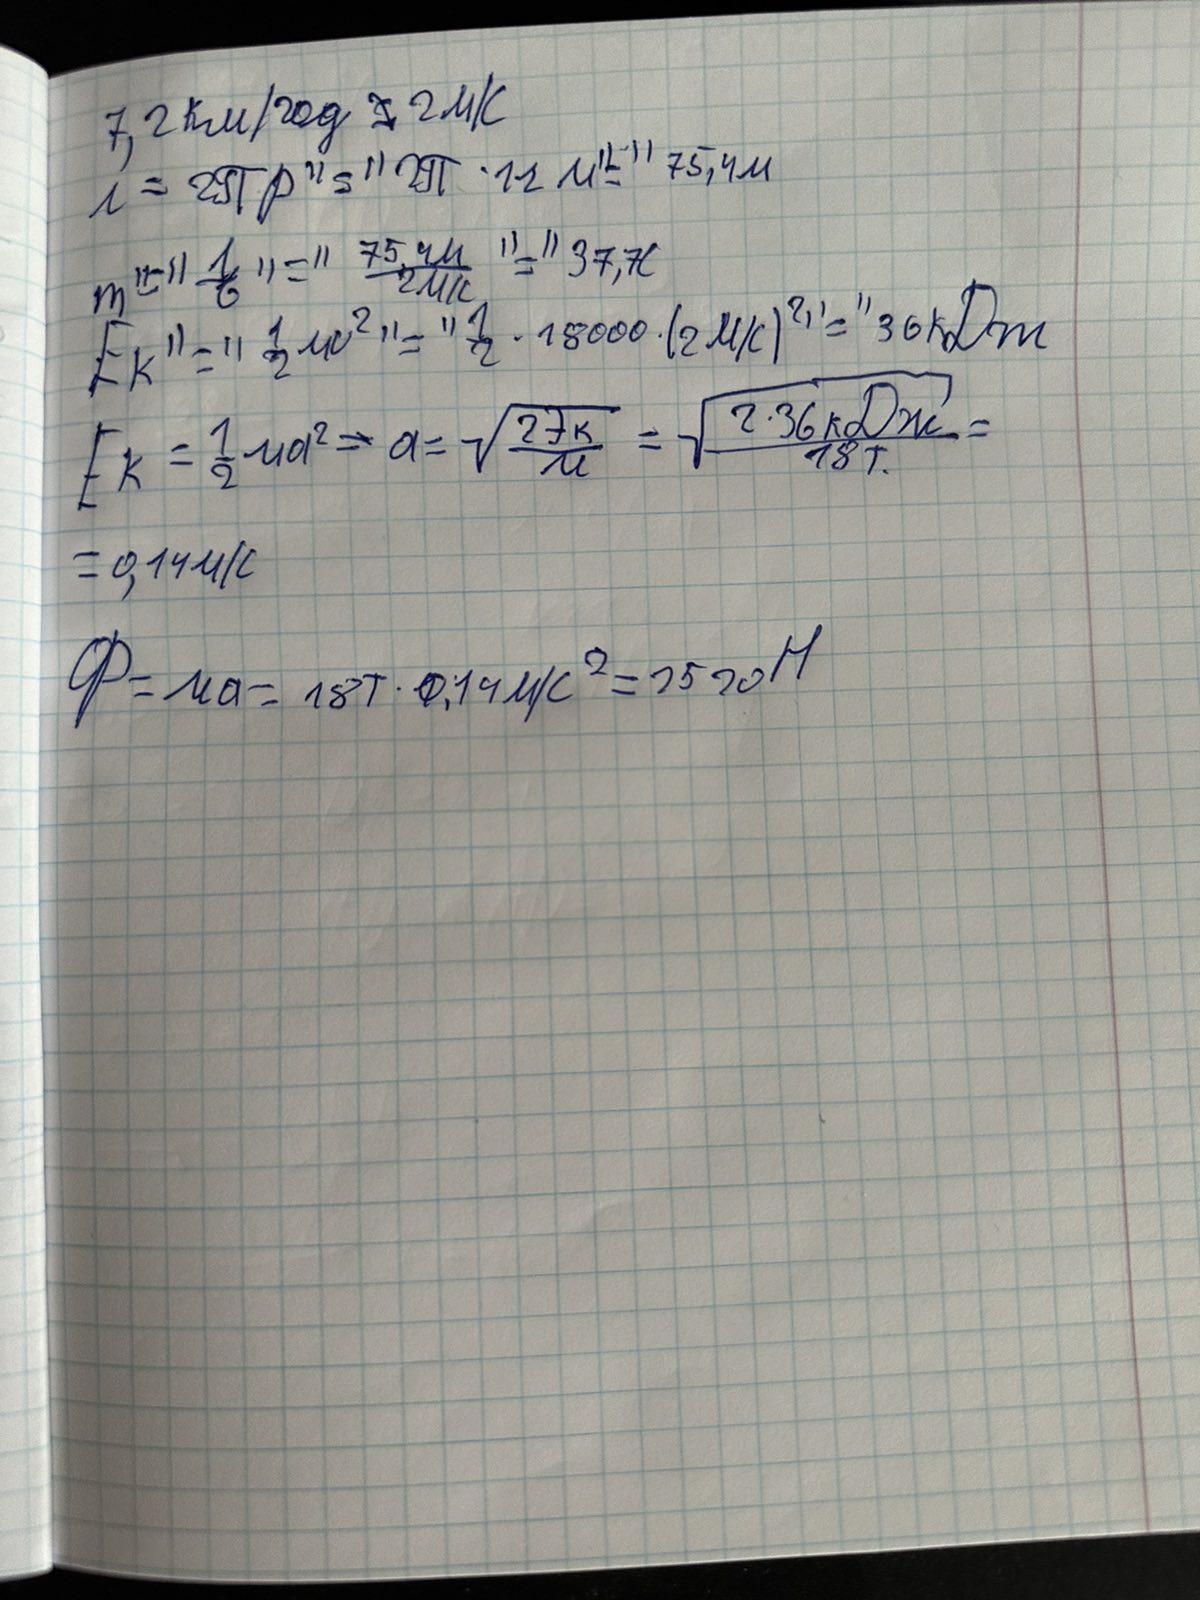 7,2 км/год = 2 м/с
л = 2π р "=" 2π · 12 м "=" 75,4м
т "=" 1/б "=" 75,4м/2м/с "=" 37,7с
Ек "=" 1/2 мv² "=" 1/2 · 18000 · (2 м/с)² "=" 36 кДж
Ек = 1/2 ма² → а = √2Ек/м = √2·36кДж/18т. =
= 0,14м/с
Ф = ма = 18т · 0,14м/с² = 2520Н